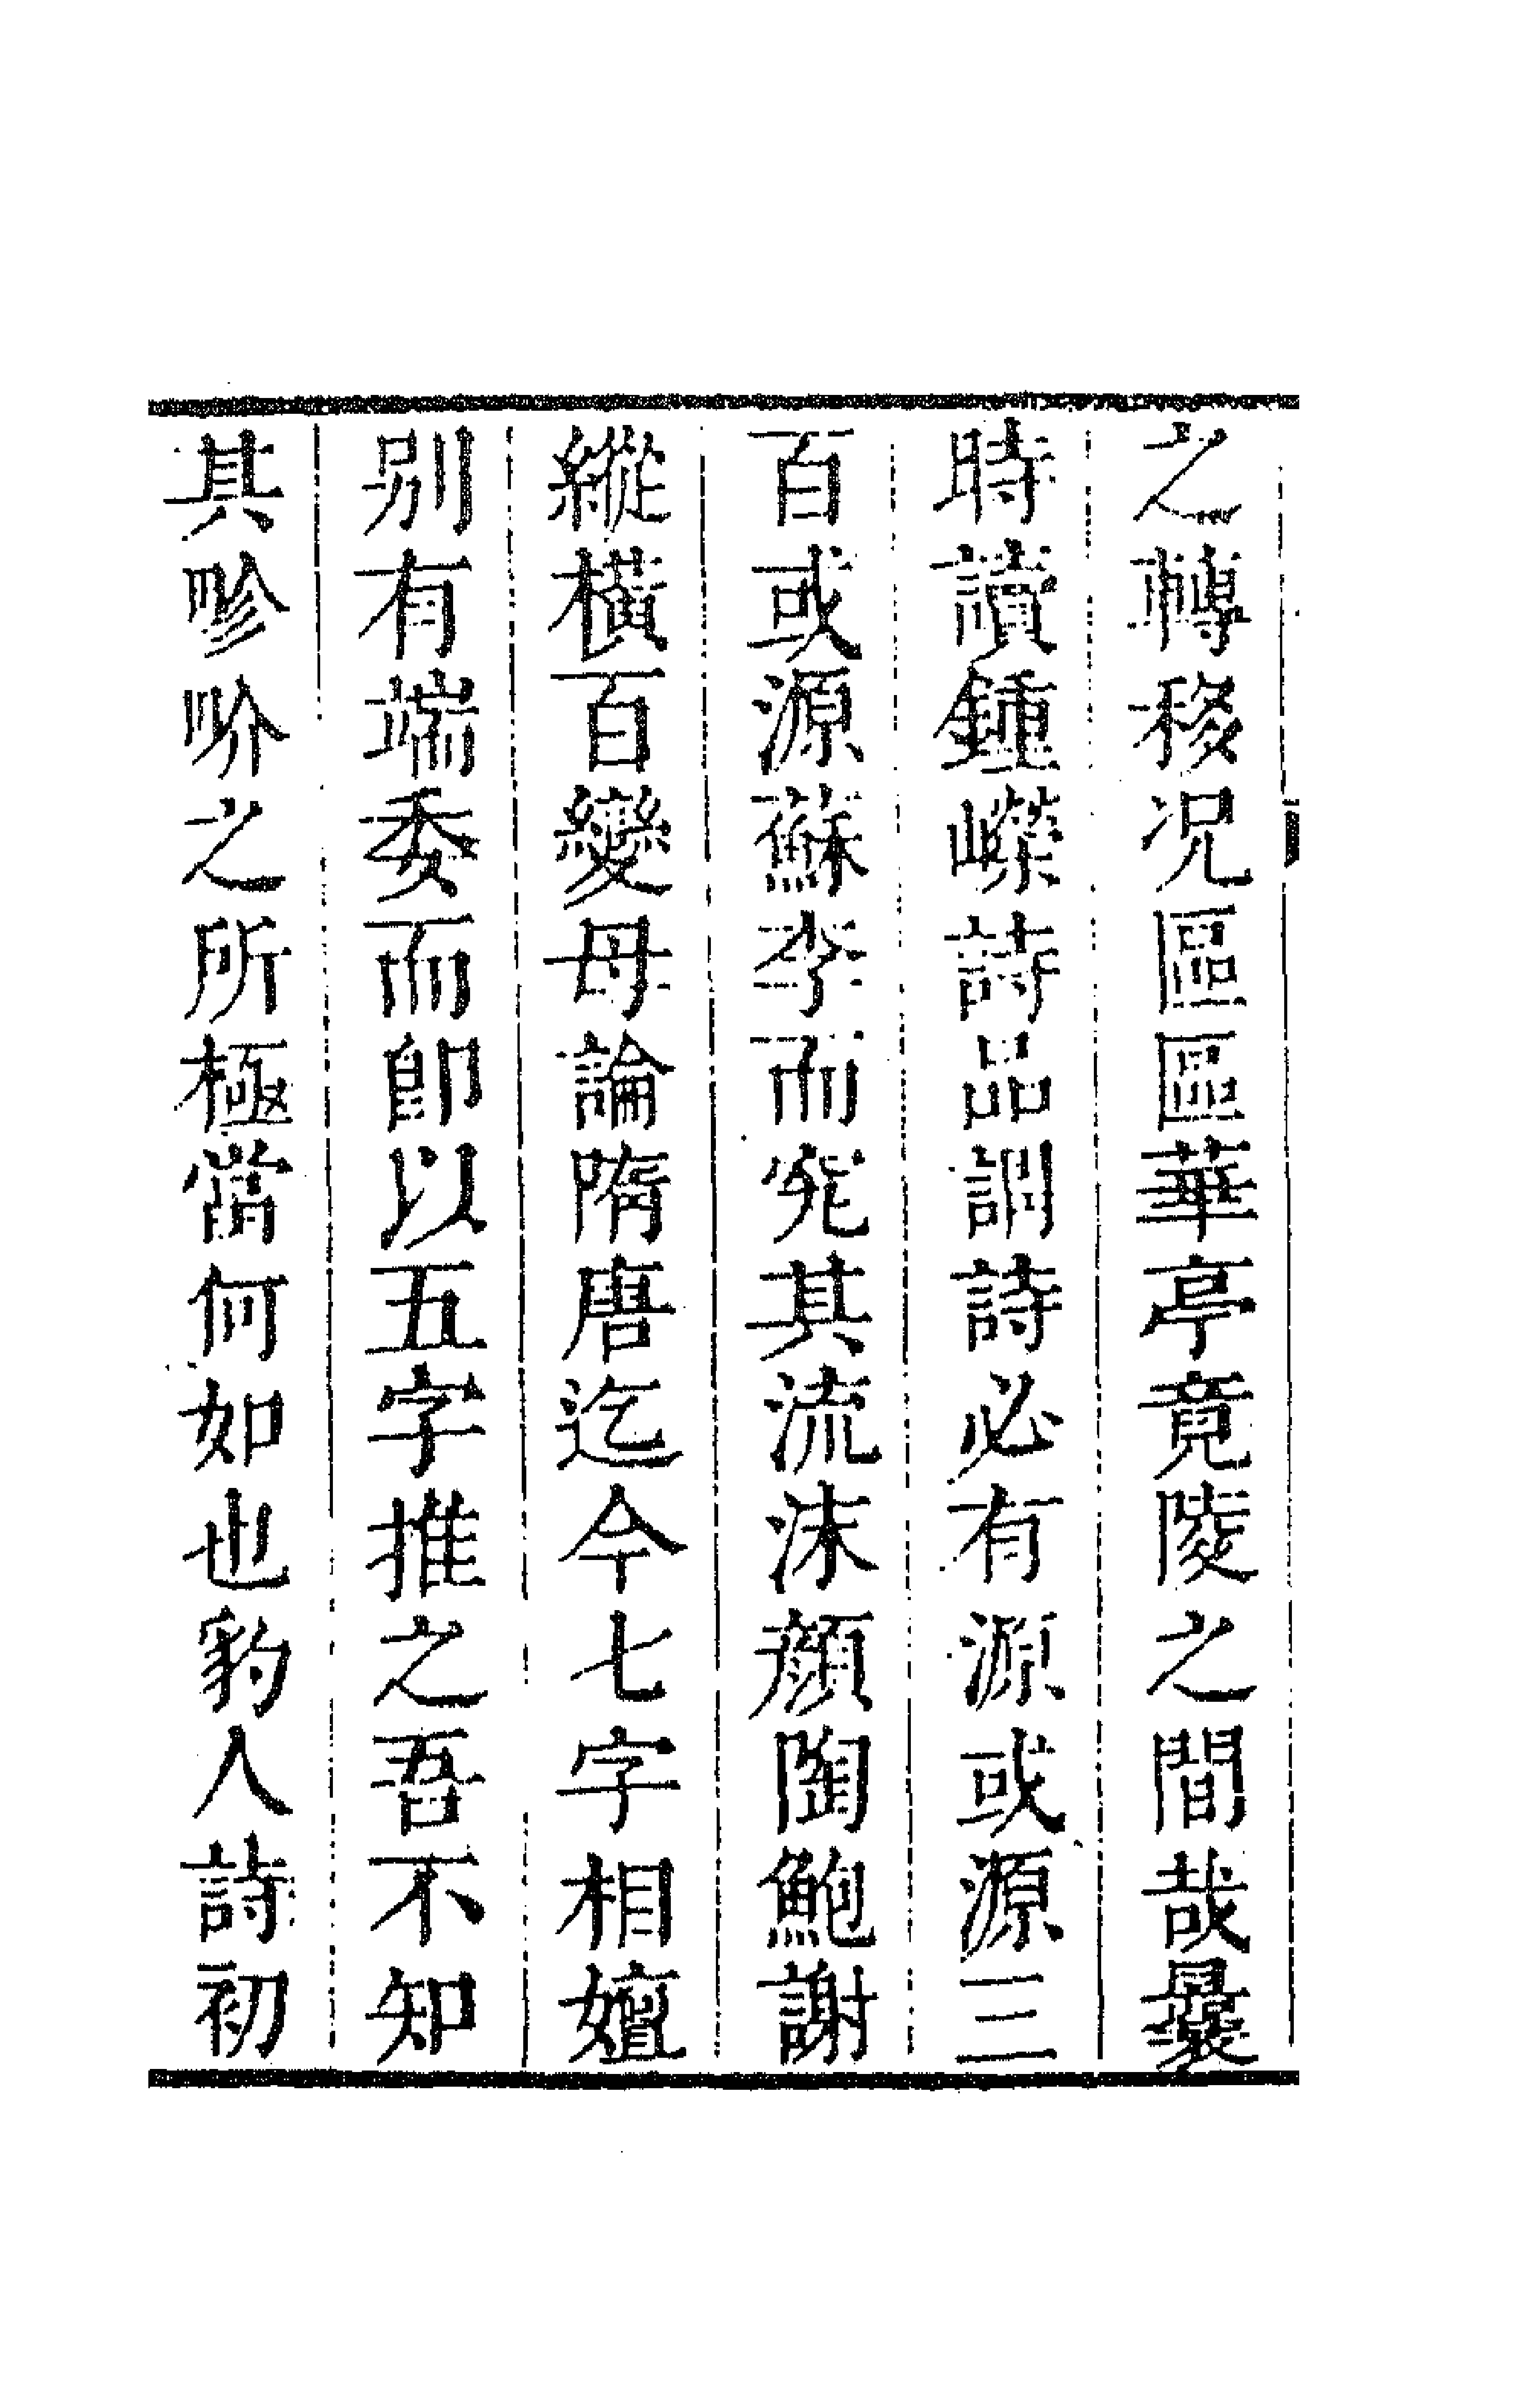 之轉移况區區華亭竟陵之間哉曩
時讀鍾嶸詩品調詩必有源或源三
百或源蘇李而究其流沫顏陶鮑謝
縱橫百變毋論隋唐迄今七字相嬗
別有端委而卽以五字推之吾不知
其畛畍之所極當何如也豹人詩初